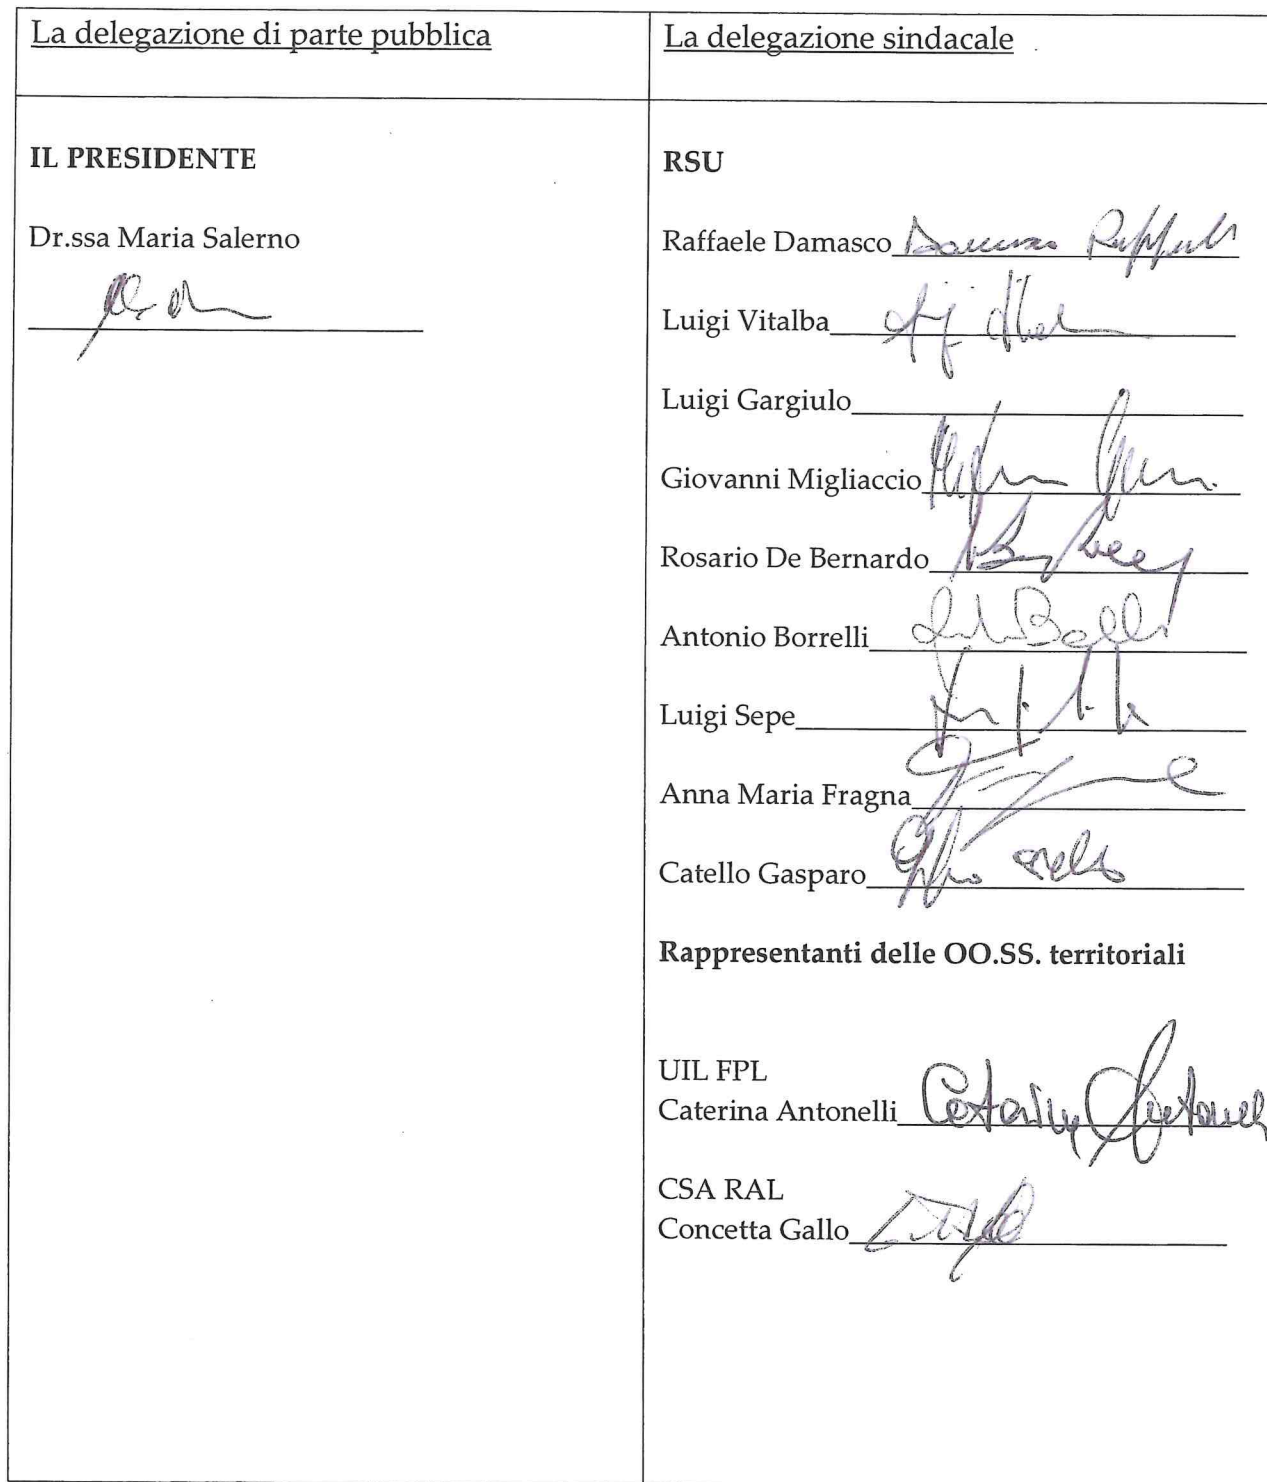 La delegazione di parte pubblica
IL PRESIDENTE
Dr.ssa Maria Salerno
La delegazione sindacale
RSU
Raffaele Damasco
Luigi Vitalba
Luigi Gargiulo
Giovanni Migliaccio
Rosario De Bernardo
Antonio Borrelli
Luigi Sepe
Anna Maria Fragna
Catello Gasparo
Rappresentanti delle OO.SS. territoriali
UIL FPL
Caterina Antonelli
CSA RAL
Concetta Gallo